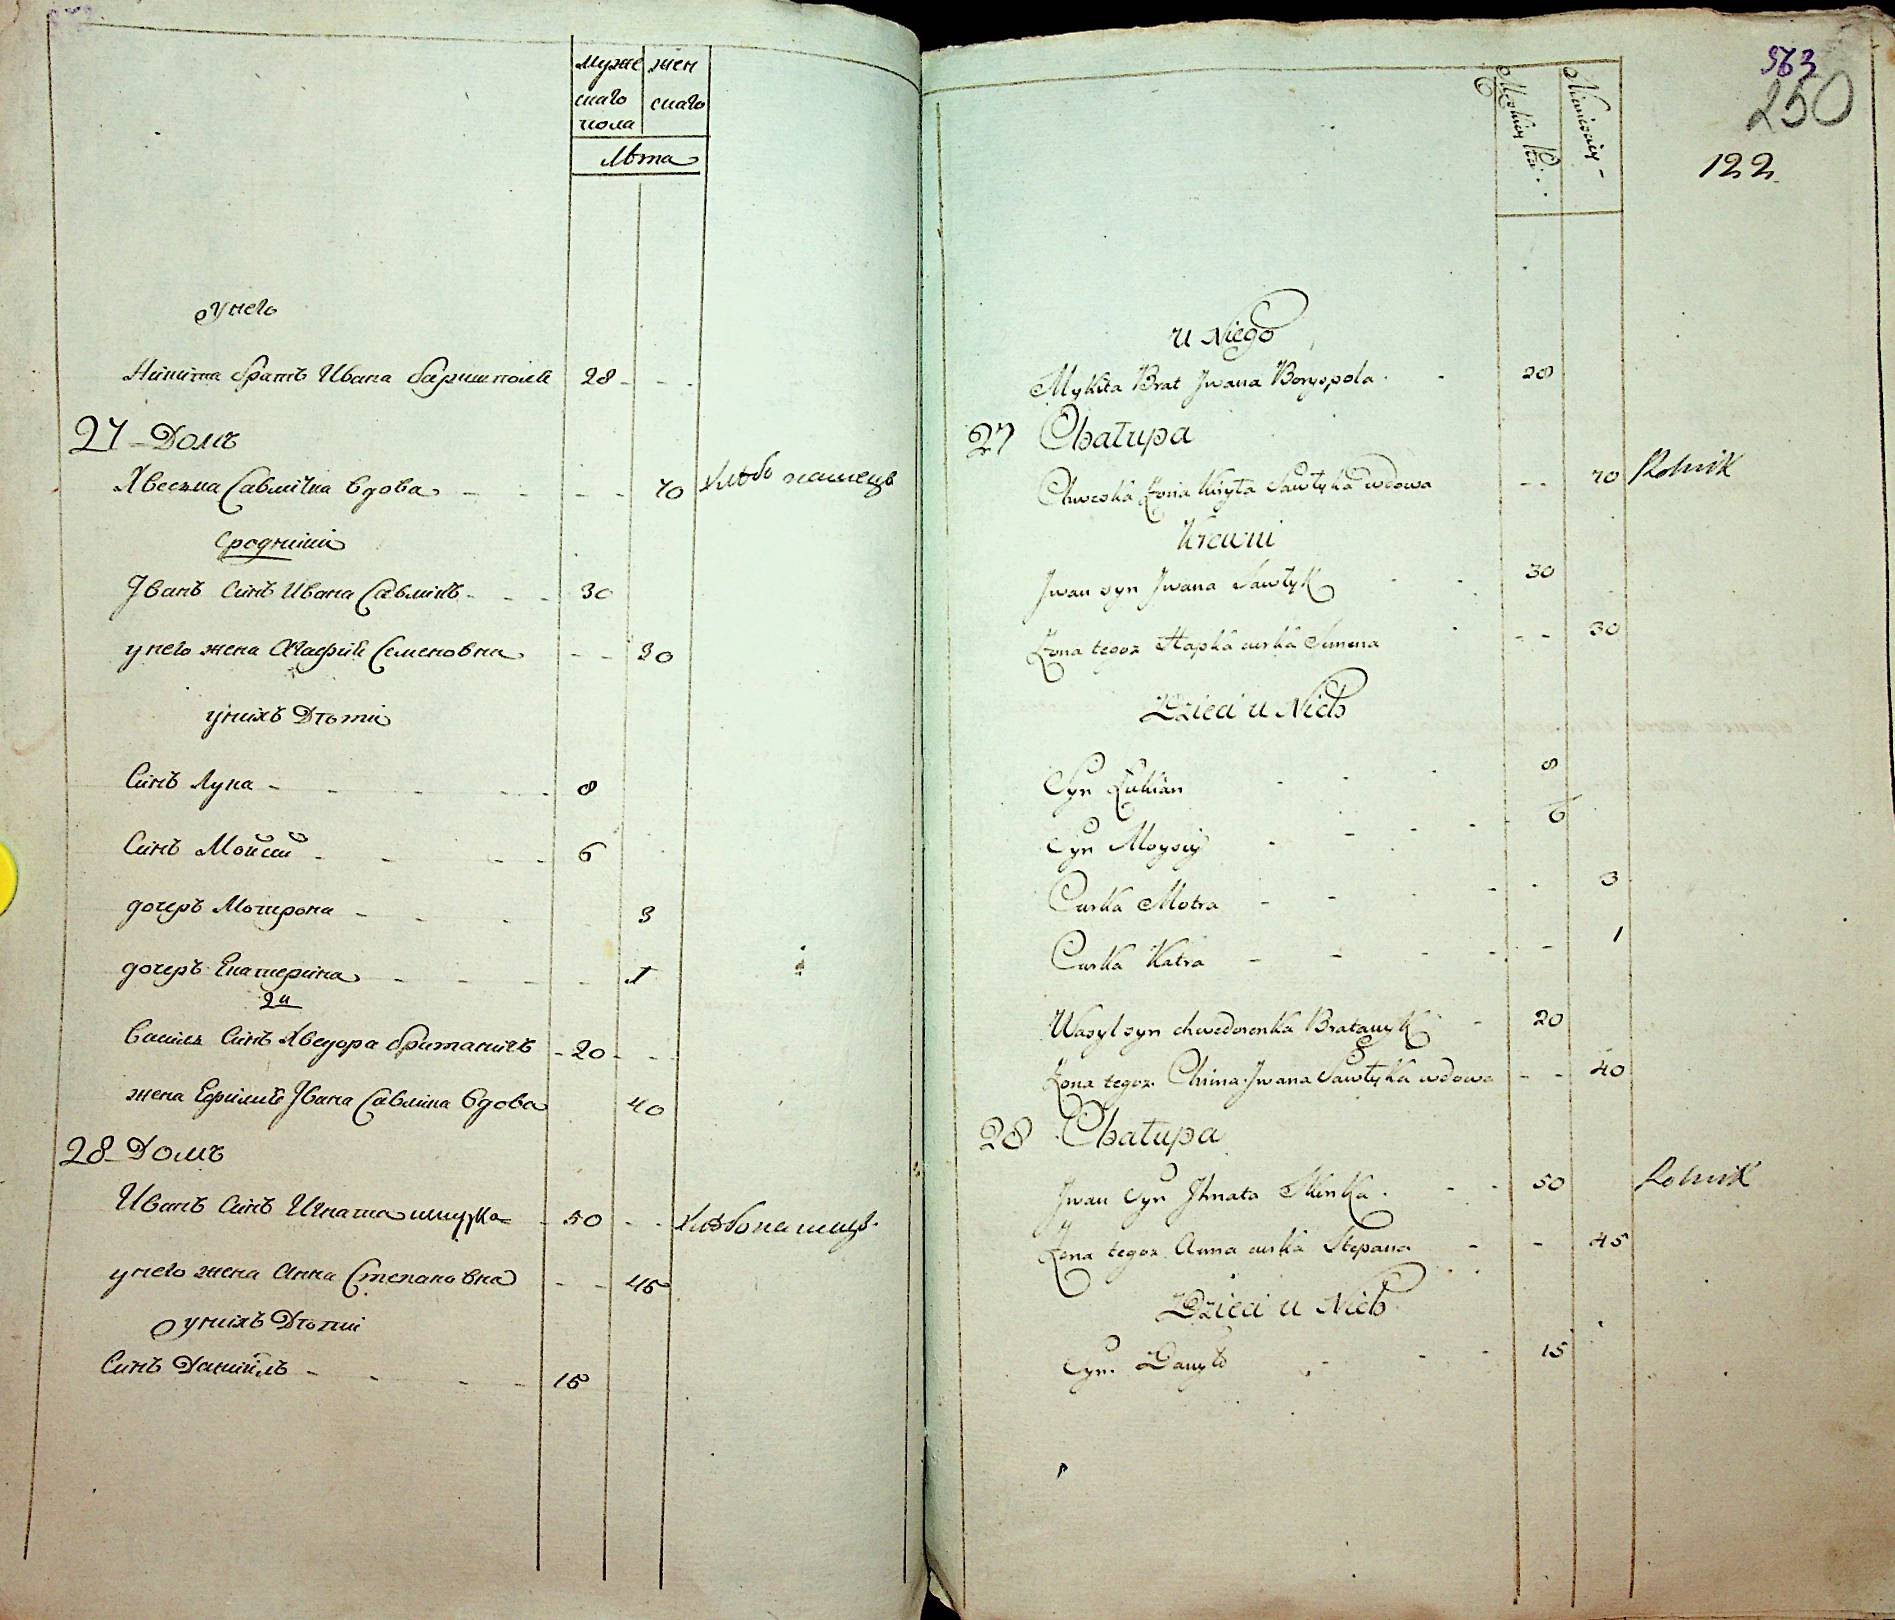 муже жен
скаго скаго
пола
Лѣта
у него
Никита братъ Ивана Баришполя 28
27 Домъ
Хвеска Савлучка вдова 70 хлѣбопашецъ
Сродники
Іванъ Синъ Ивана Савликъ 30
у него жена Агафия Семеновна 30
у нихъ Дѣти
Синъ Лука 8
Синъ Мойсій 6
дочеръ Мотрона 3
дочеръ Екатерина 1
2я
Василь Синъ Хведора братаничъ 20
жена Ефимія Івана Савлика вдова 40
28 Домъ
Иванъ Синъ Игната 50 хлѣбопашецъ
у него жена Анна Степановна 45
у нихъ Дѣти
Синъ Даниилъ 15
563
250
122
Męskiey Płci
Niewieściey
u Niego
Mykita Brat Jwana Boryspola 28
27 Chałupa
Chweska Żona Kiryła Sawłyka wdowa 70 Rolnik
Krewni
Jwan syn Jwana Sawłyk 30
Żona tegoż Hapka curka Semena 30
Dzieci u Nich
Syn Łukian 8
Syn Moysiy 6
Curka Motra 3
Curka Katra 1
Wasyl syn chwedorenka Bratanyk 20
Żona tegoż Chima Jwana Sawłyka wdowa 40
28 Chałupa
Jwan Syn Jhnata 50 Rolnik
Żona tegoż Anna curka Stepana 45
Dzieci u Nich
Syn Danyło 15